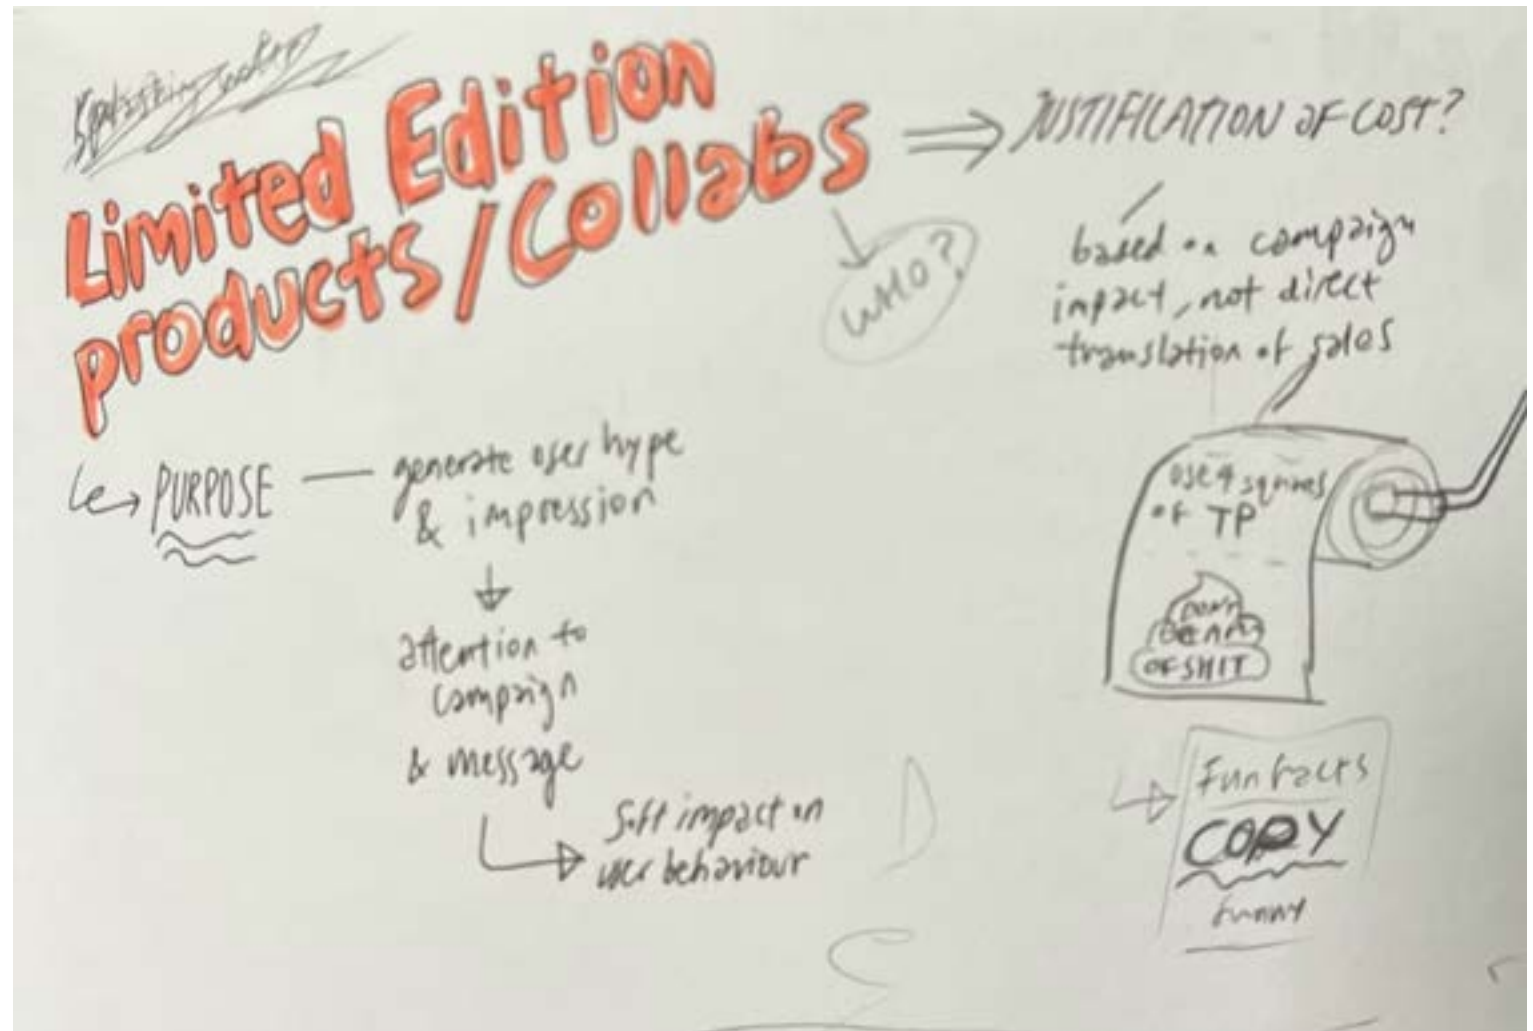 Limited Edition
products/Collabs
JUSTIFICATION OF COST?
WHO?
based on campaign
impact, not direct
translation of sales
PURPOSE
generate user hype
& impression
attention to
campaign
& message
Soft impact on
user behaviour
USE 4 squares
OF TP
DON'T
OF SHIT
Fun facts
COPY
funny